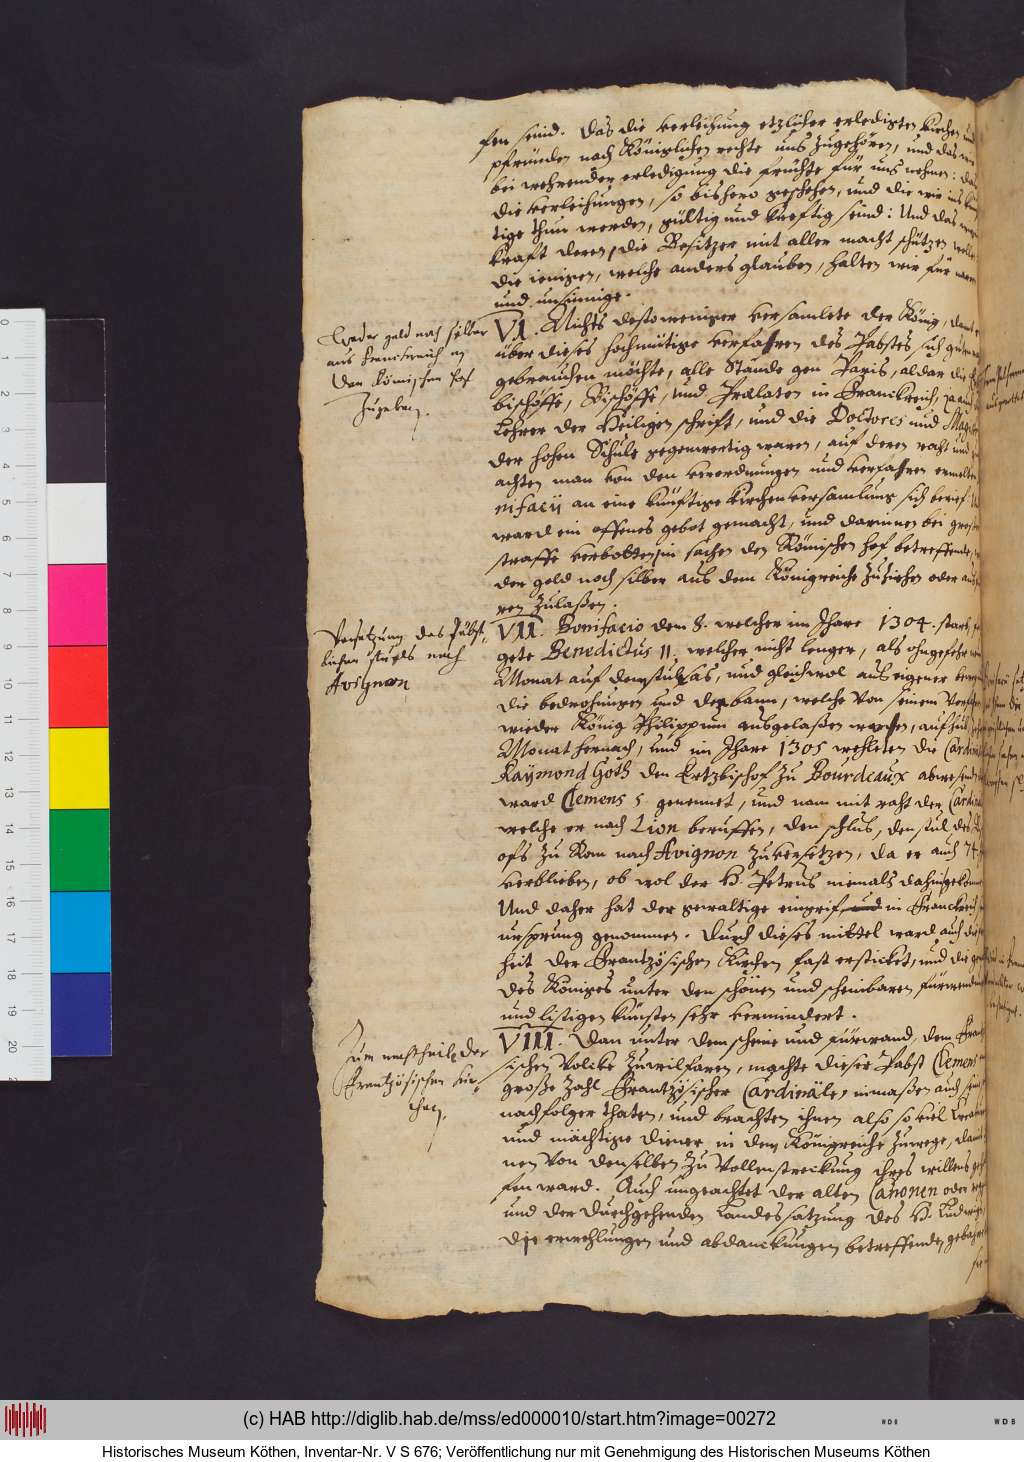 sen seind. Das die verleihung etzlicher erledigten Kirchen und
pfründen nach Königlichen rechte uns zugehören, und das wir
bei wehrender erledigung die früchte für uns nehmen: das
die verleihungen, so bishero geschehen, und die wir ins künf
tige thun werden, gültig und kreftig seind: Und das wir
kraft deren, die Besitzer mit aller macht schützen wollen
die ienigen, welche anders glauben, halten wir für narren
und unsinnige.
Weder geld noch silber
aus Franckreich in
den Römischen hof
Zugeben.
VI. Nichts destoweniger versamlete der König, damit er
über dieses hochmütige verfahren des Pabstes sich guten
gebrauchen möchte, alle Stände gen Paris, aldar die
bischöffe, Bischöffe, und Prælaten in Franckreich,
Lehrer der Heiligen schrift, und die Doctores und
der hohen Schule gegenwertig waren, auf deren raht und
achten man von den verordnungen und verfahren
nifacij an eine künftige Kirchenversamlung sich berief.
ward ein offenes gebot gemacht, und darinnen bei grosser
straffe verbotten, in sachen den Römischen hof betreffende,
der geld noch silber aus dem Königreiche Zuziehen oder
ren Zulaßen.
Versetzung des Päbst-
lichen stuels nach
Avignon
VII. Bonifacio dem 8. welcher im Jhare 1304. starb,
gete Benedictus 11. welcher nicht lenger, als ohngefehr
Monat auf dem stul sas, und gleichwol aus eigener
die bedrohungen und den bann, welche von seinem
wieder König Philippum ausgelaßen worden, aufhub
Monat hernach, und im Jhare 1305 wehleten die Cardinäle
Raymond Goth den Ertzbischof Zu Bourdeaux abwesend
ward Clemens 5. genennet, und nam mit raht der Cardinäle
welche er nach Lion beruffen, den schlus, den stul des
ofs Zu Rom nach Avignon Zuversetzen, da er auch 74.
verblieben, ob wol der H. Petrus niemals dahin gekommen
Und daher hat der gewaltige eingrif in Franckreich
ursprung genommen. Durch dieses mittel ward auch die
heit der Frantzösischen Kirchen fast ersticket, und die
des Königes unter den schönen und scheinbaren fürwendungen
und listigen künsten sehr vermindert.
Zum nachtheil der
Frantzösischen Kir-
chen.
VIII. Dan unter dem scheine und fürwand, dem
sischen Volcke Zuwilfaren, machte dieser Pabst Clemens
große Zahl Frantzösischer Cardinäle, inmaßen auch seine
nachfolger thaten, und brachten ihnen also so viel
und mächtige diener in dem Königreiche Zuwege, damit
nen von denselben Zu Vollenstreckung ihres willens
fen ward. Auch ungeachtet der alten Canonen oder
und der durchgehenden Landes satzung des H. Ludwigs
die erwehlungen und abdanckungen betreffenden,
(c) HAB http://diglib.hab.de/mss/ed000010/start.htm?image=00272
Historisches Museum Köthen, Inventar-Nr. V S 676; Veröffentlichung nur mit Genehmigung des Historischen Museums Köthen